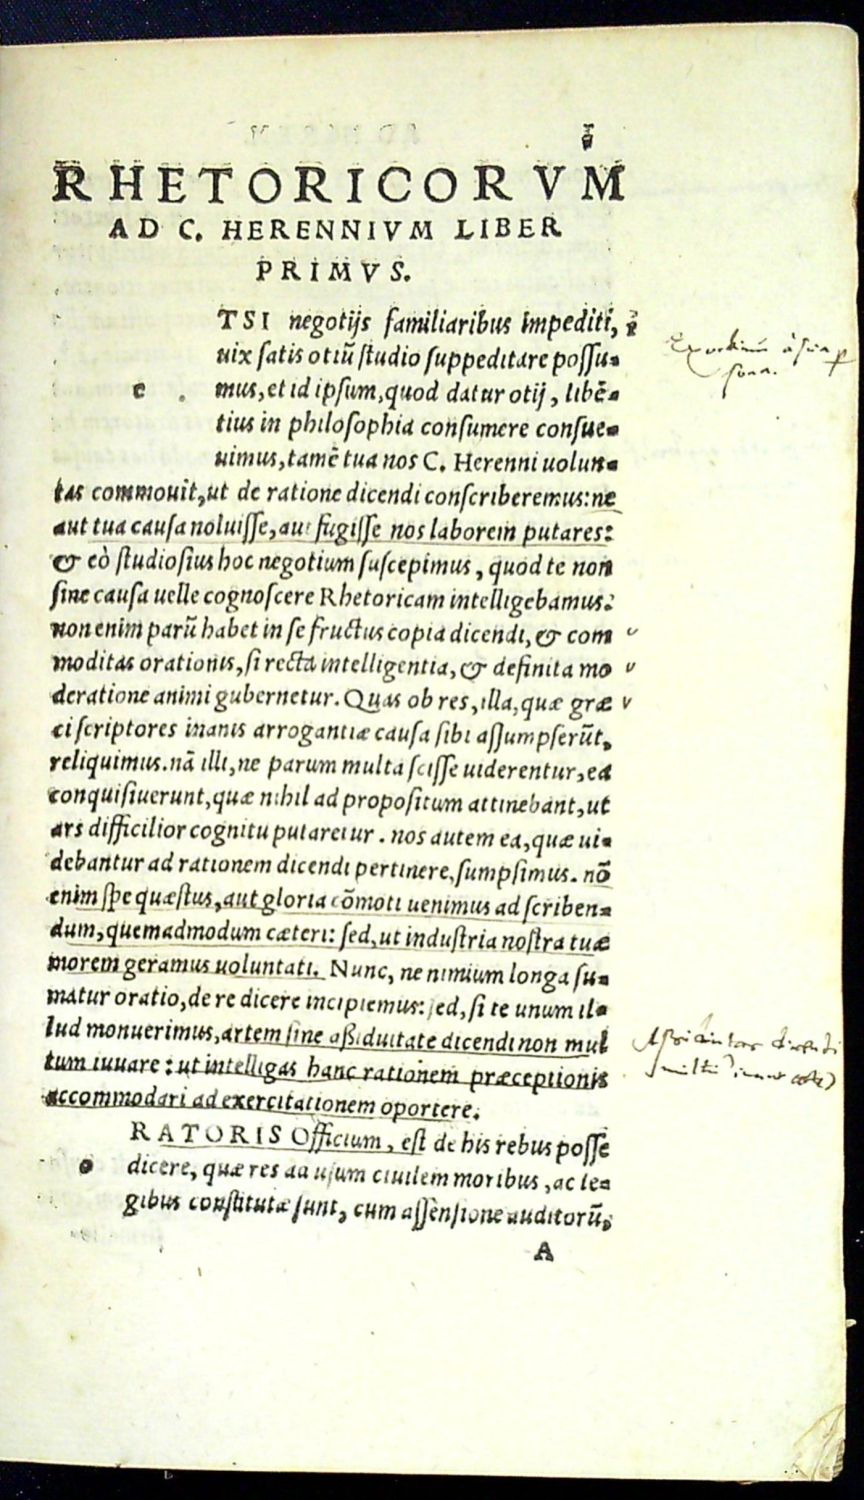 RHETORICORVM
AD C. HERENNIVM LIBER
PRIMVS.
TSI negotijs familiaribus impediti,
uix satis otiũ studio suppeditare possu-
e mus, et id ipsum, quod datur otij, libẽ-
tius in philosophia consumere consue-
uimus, tamẽ tua nos C. Herenni uolun-
tas commouit, ut de ratione dicendi conscriberemus: ne
aut tua causa noluisse, aut fugisse nos laborem putares:
& eò studiosius hoc negotium suscepimus, quod te non
sine causa uelle cognoscere Rhetoricam intelligebamus:
non enim parũ habet in se fructus copia dicendi, & com
moditas orationis, si recta intelligentia, & definita mo
deratione animi gubernetur. Quas ob res, illa, quæ græ
ci scriptores inanis arrogantiæ causa sibi assumpserũt,
reliquimus. nã illi, ne parum multa scisse uiderentur, ea
conquisiuerunt, quæ nihil ad propositum attinebant, ut
ars difficilior cognitu putaretur. nos autem ea, quæ ui-
debantur ad rationem dicendi pertinere, sumpsimus. nõ
enim spe quæstus, aut gloria cõmoti uenimus ad scriben-
dum, quemadmodum cæteri: sed, ut industria nostra tuæ
morem geramus uoluntati. Nunc, ne nimium longa su-
matur oratio, de re dicere incipiemus: sed, si te unum il-
lud monuerimus, artem sine aßiduitate dicendi non mul
tum iuuare: ut intelligas hanc rationem præceptionis
accommodari ad exercitationem oportere.
RATORIS Officium, est de his rebus posse
o dicere, quæ res ad usum ciuilem moribus, ac le-
gibus constitutæ sunt, cum assensione auditorũ,
A